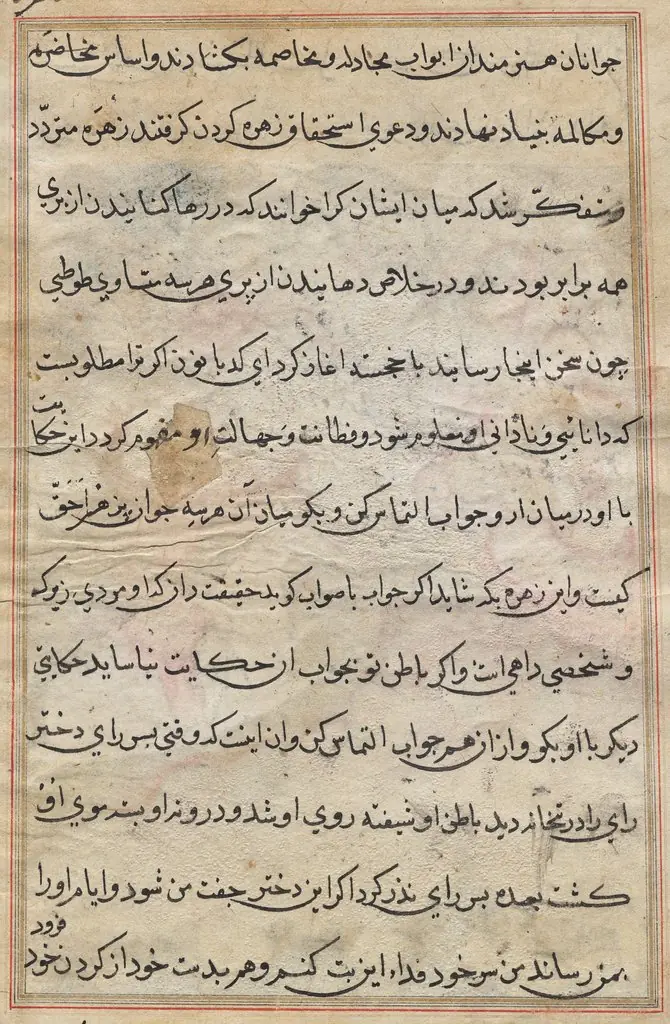 جوانان هنرمندان ابواب مجادله و مخاصمه بکشادند و اساس مخاضمه
و مکالمه بنیاد نهادند و دعوی استحقاق زهره کردن کرفتند زهره متردّد
و متفکّر شد که میان ایشان کرا خوانند که در رها کنانیدن از پری
همه برابر بودند و در خلاص دهانیدن از پری هر سه متساوی طوطی
چون سخن اینجا رسانید با خجسته اغاز کرد ای کدبانون اکر ترا مطلوبست
که دانایی و نادانی او معلوم شود و فطانت و جهالتِ او مفهوم کردد این حکایت
با او در میان ار و جواب التماس کن و بکو میان آن هر سه جوان پرهنر احقّ
کیست و این زهره بکه شاید اکر جواب باصواب کوید حقیقت دان که او مردی زیرک
و شخصی داهی است و اکر باطن تو بجواب ان حکایت نیاساید حکایتی
دیکر با او بکو و از ان هم جواب التماس کن و ان اینست که وقتی پسر رای دختر
رای را در بتخانه دید باطن او شیفته روی او شد و درونه او بسته موی او
کشت بعده پسر رای نذر کرد اکر این دختر جفت من شود و ایام او را
بمن رساند من سر خود فداء این بت کنم و هم بدست خود از کردن خود فرود